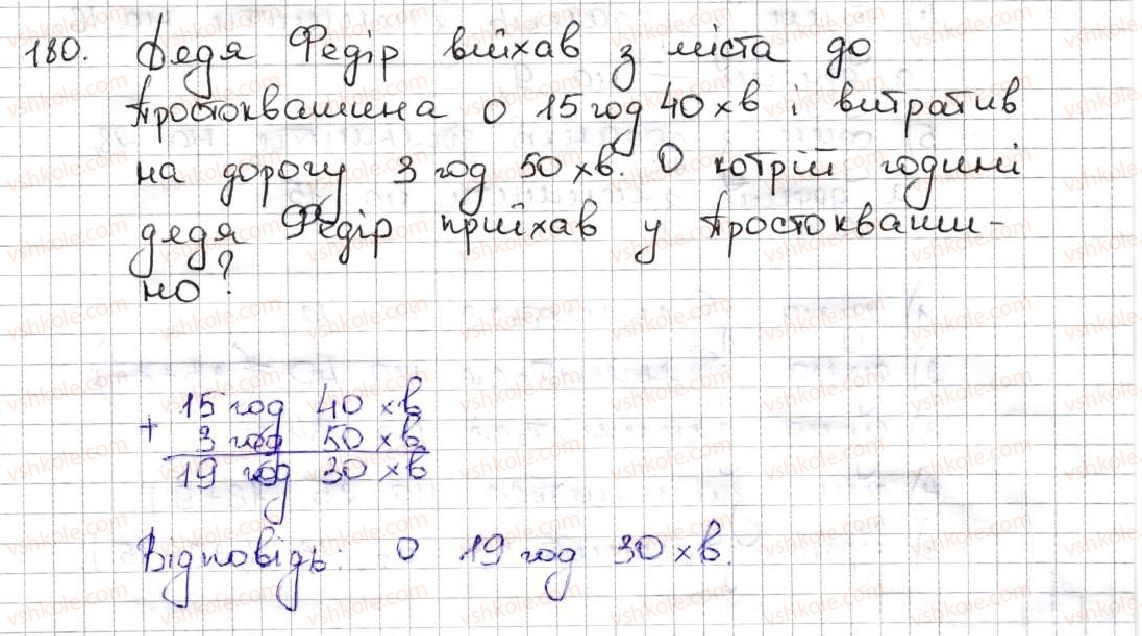 180. Дядя Федір виїхав з міста до
Простоквашина о 15 год 40 хв і витратив
на дорогу 3 год 50 хв. О котрій годині
дядя Федір приїхав у Простокваши-
но?
15 год 40 хв
+ 3 год 50 хв
19 год 30 хв
Відповідь: о 19 год 30 хв.